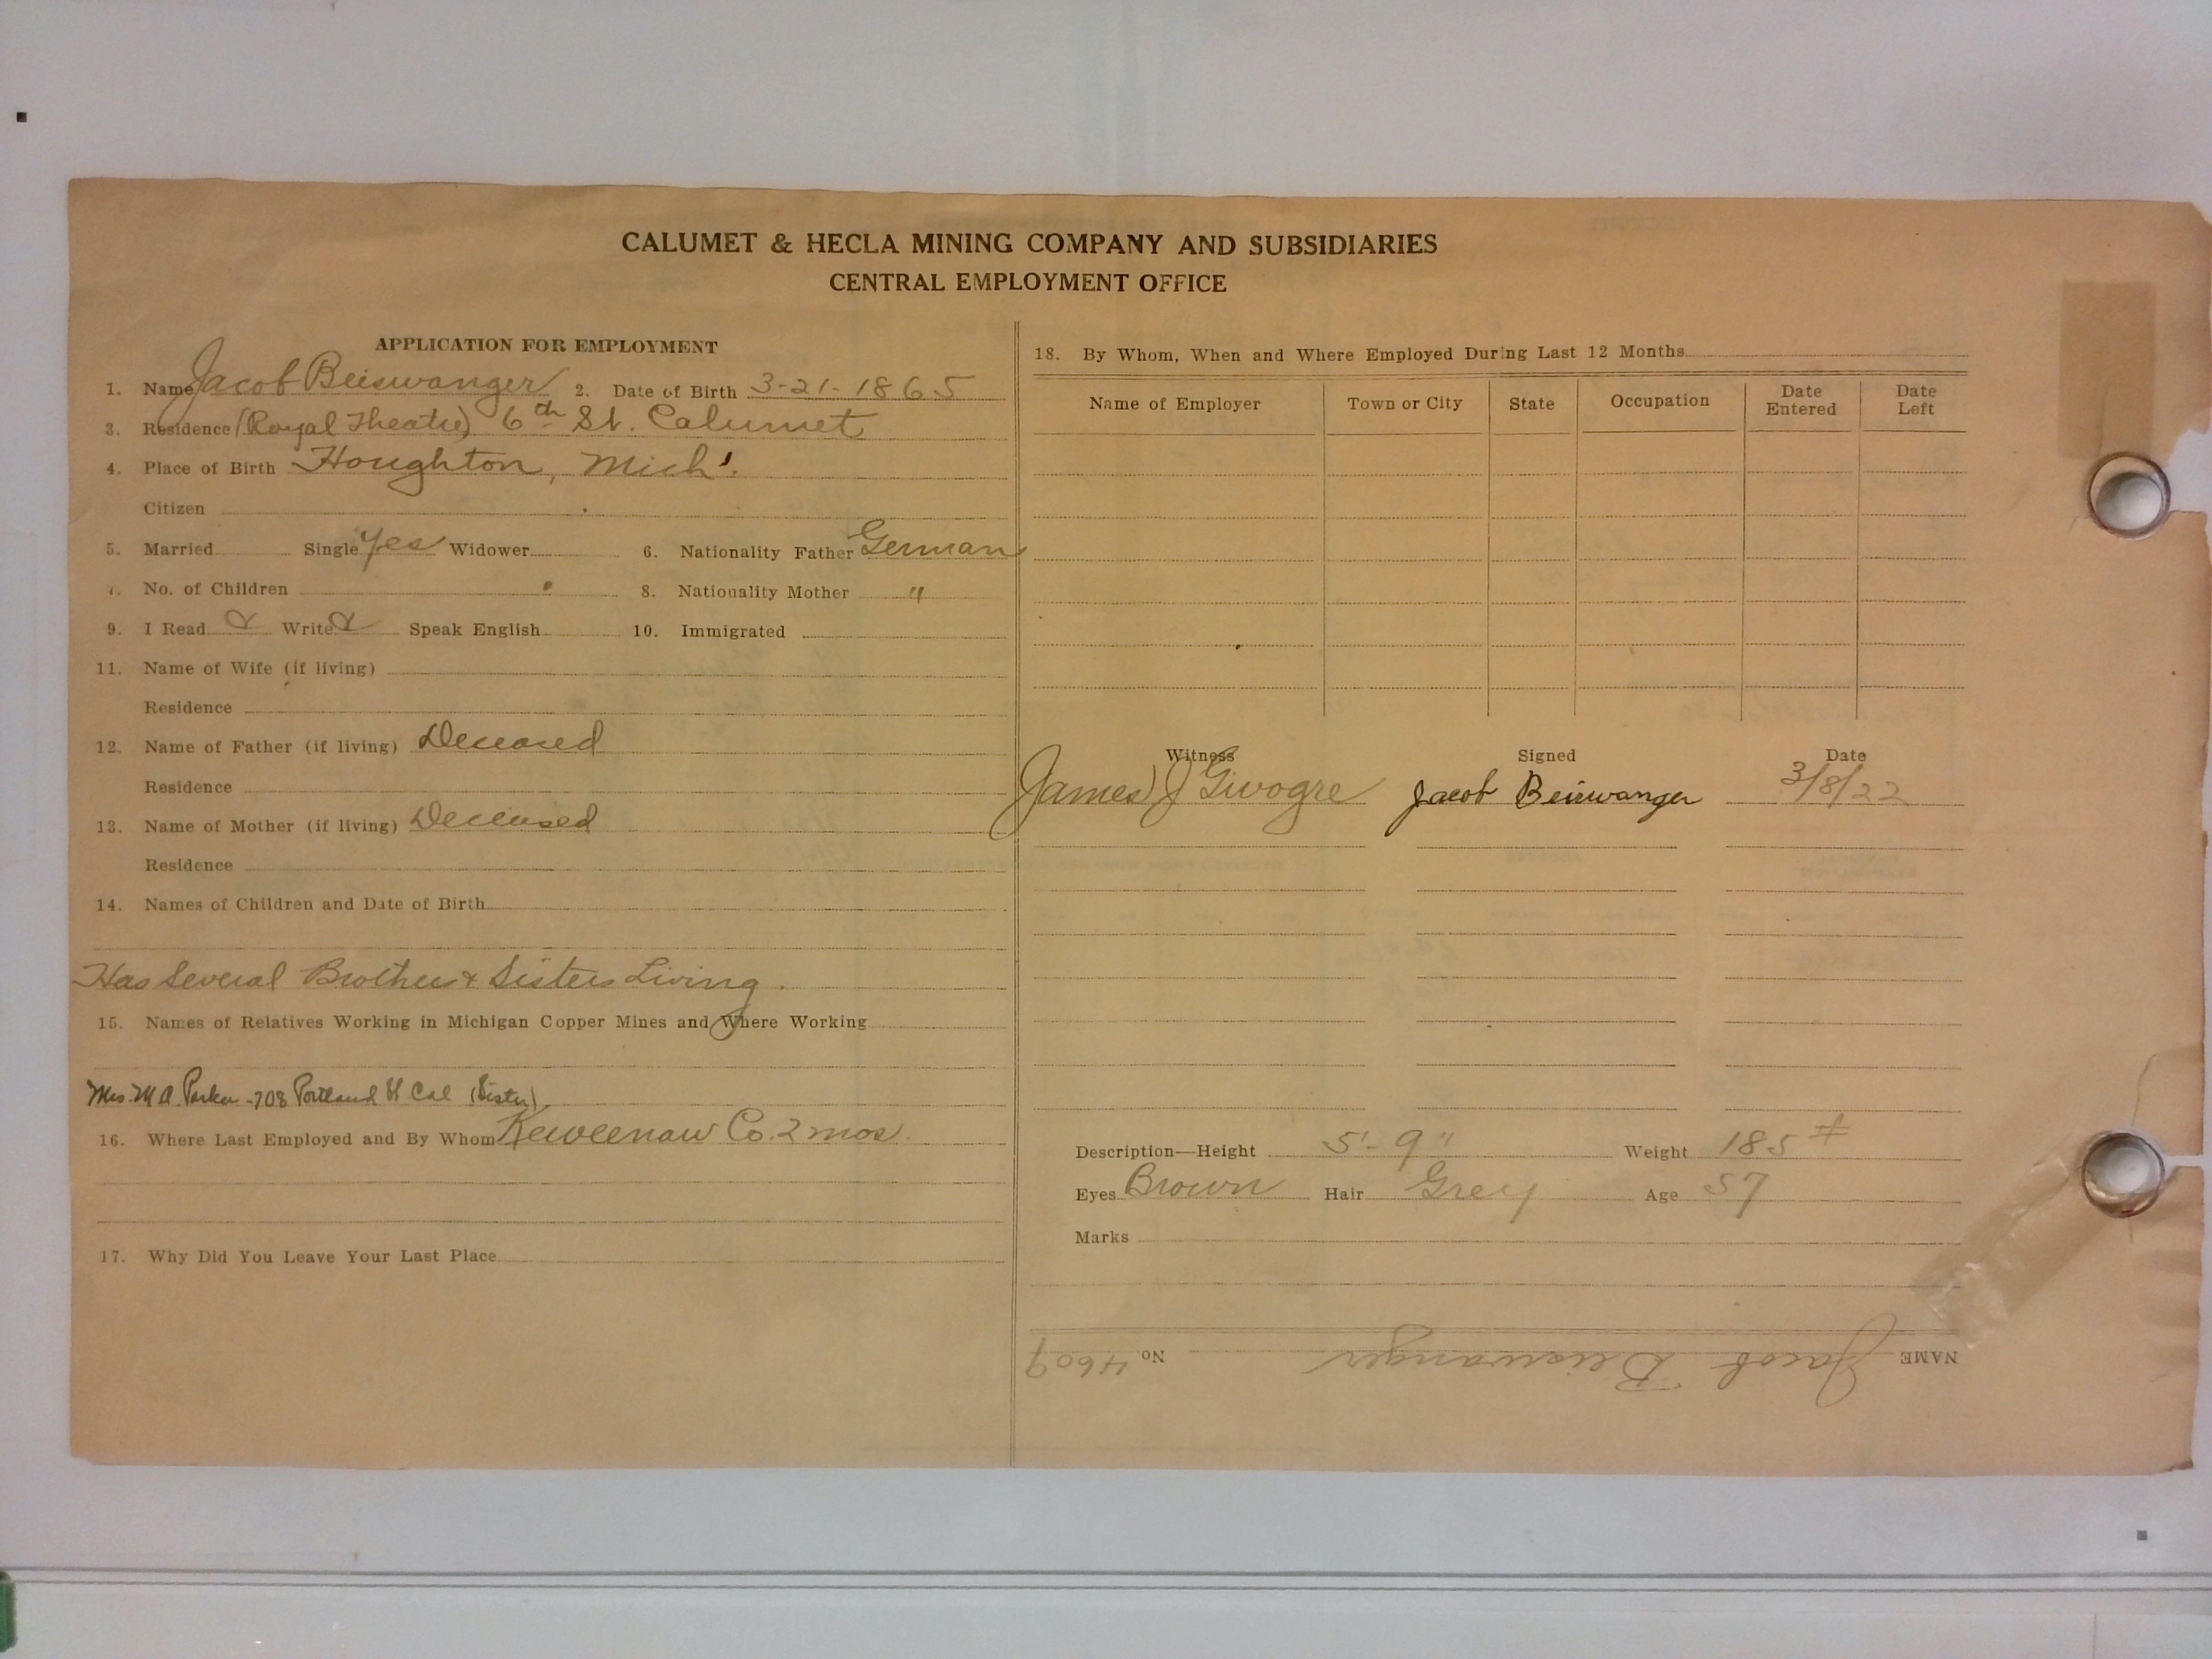 CALUMET & HECLA MINING COMPANY AND SUBSIDIARIES
CENTRAL EMPLOYMENT OFFICE
APPLICATION FOR EMPLOYMENT
1. Name Jacob Beiswanger 2. Date of Birth 3-21-1865
3. Residence (Royal Theatre) 6th St. Calumet
4. Place of Birth Houghton, Mich.
Citizen
5. Married Single Yes Widower 6. Nationality Father German
7. No. of Children 8. Nationality Mother "
9. I Read & Write & Speak English 10. Immigrated
11. Name of Wife (if living)
Residence
12. Name of Father (if living) Deceased
Residence
13. Name of Mother (if living) Deceased
Residence
14. Names of Children and Date of Birth
Has Several Brothers & Sisters Living.
15. Names of Relatives Working in Michigan Copper Mines and Where Working
Mrs. M A. Parker - 708 Portland St Cal (Sister)
16. Where Last Employed and By Whom Keweenaw Co. 2 mos.
17. Why Did You Leave Your Last Place
18. By Whom, When and Where Employed During Last 12 Months
Name of Employer Town or City State Occupation Date Entered Date Left
Witness Signed Date
James J Jacob Beiswanger 3/8/22
Description—Height 5'-9" Weight 185#
Eyes Brown Hair Grey Age 57
Marks
NAME Jacob Beiswanger No. 4609